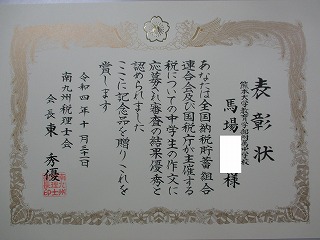 表彰状
熊本大学教育学部附属中学校
馬場 様
あなたは全国納税貯蓄組合
連合会及び国税庁が主催する
税についての中学生の作文に
応募され審査の結果優秀と
認められました
ここに記念品を贈りこれを
賞します
令和四年十一月三日
南九州税理士会
会長 東 秀優